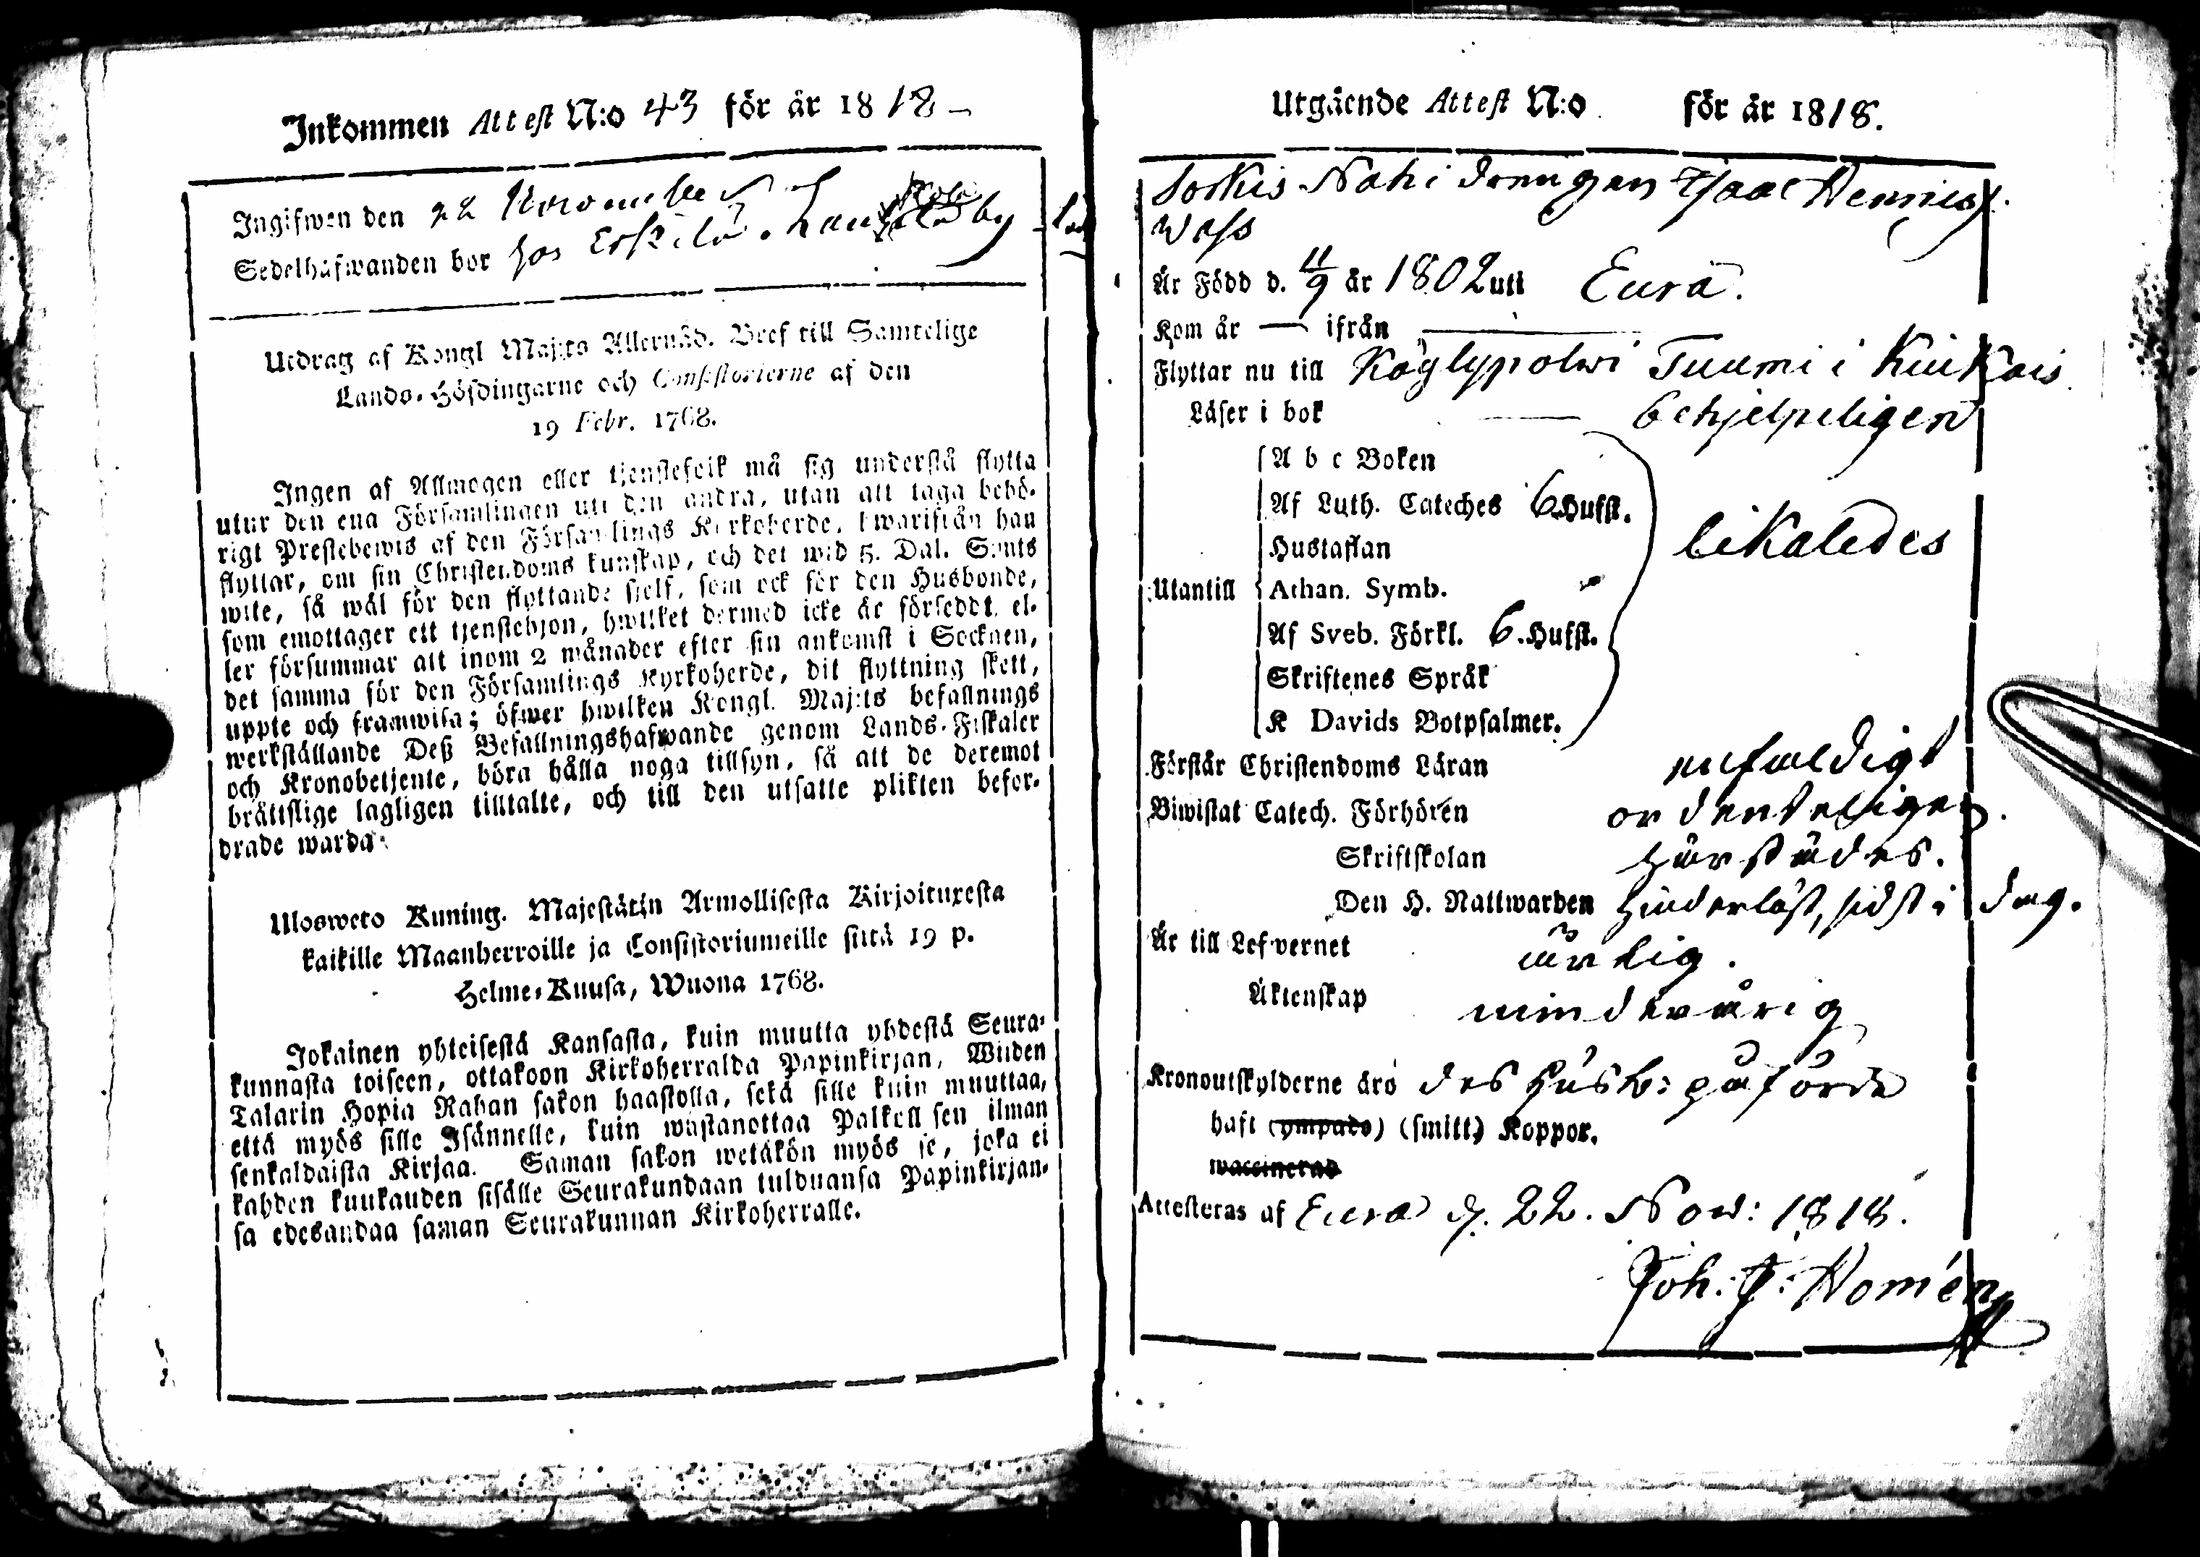 Inkommen Attest N:o 43 för år 1818
Ingifwen den 22 November
Sedelhafwanden bor hos Eskilä
Utdrag af Kongl Maj:ts Allernåd. Bref till Samtelige
Lands-Höfdingarne och Consistorierne af den
19 Febr. 1768.
Ingen af Allmogen eller tjenstefolk må sig understå flytta
utur den ena Församlingen uti den andra, utan att taga behö-
rigt Prestebewis af den Församlings Kyrkoherde, hwarifrån han
flyttar, om sin Christendoms kunskap, och det wid 5. Dal. S:mts
wite, så wäl för den flyttande sjelf, som ock för den Husbonde,
som emottager ett tjenstehjon, hwilket dermed icke är försedt, el-
ler försummar att inom 2 månader efter sin ankomst i Socknen,
det samma för den Församlings Kyrkoherde, dit flyttning skett,
uppte och framwisa; öfwer hwilken Kongl. Maj:ts befallnings
werkställande Deß Befallningshafwande genom Lands-Fiskaler
och Kronobetjente, böra hålla noga tillsyn, så att de deremot
bråttslige lagligen tilltalte, och till den utsatte plikten befor-
drade warda.
Ulosweto Kuning. Majestätin Armollisesta Kirjoituxesta
kaikille Maanherroille ja Consistoriumeille siitä 19 p.
Helme-Kuusa, Wuona 1768.
Jokainen yhteisestä Kansasta, kuin muutta yhdestä Seura-
kunnasta toiseen, ottakoon Kirkoherralda Papinkirjan, Wiiden
Talarin Hopia Rahan sakon haastolla, sekä sille kuin muuttaa,
että myös sille Isännelle, kuin wastanottaa Palkoll sen ilman
senkaldaista Kirjaa. Saman sakon wetäkön myös se, joka ei
kahden kuukauden sisälle Seurakundaan tulduansa Papinkirjan-
sa edesandaa saman Seurakunnan Kirkoherralle.
Utgående Attest N:o för år 1818.
Sorkis Nahi drengen Isaac Henrics
Är Född d. 11/9 år 1802 uti Eura.
Kom år — ifrån
Flyttar nu till Köylypolwi Tuumi i Kiukais
Läser i bok behjelpeligen
A b c Boken
Af Luth. Cateches 6. Hufst.
Hustaflan likaledes
Utantill Athan. Symb.
Af Sveb. Förkl. 6. Hufst.
Skriftenes Språk
K Davids Botpsalmer.
Förstår Christendoms Läran enfaldigt
Biwistat Catech. Förhören ordenteligen.
Skriftskolan härstädes.
Den H. Nattwarden hinderlöst, sidst i dag.
Är till Lefvernet ärlig.
Äktenskap minderårig
Kronoutskylderne äro des Husb: påförde
haft (ympade) (smitt) Koppor.
waccinerad
Attesteras af Eura d. 22. Nov: 1818.
Joh. F: Homén